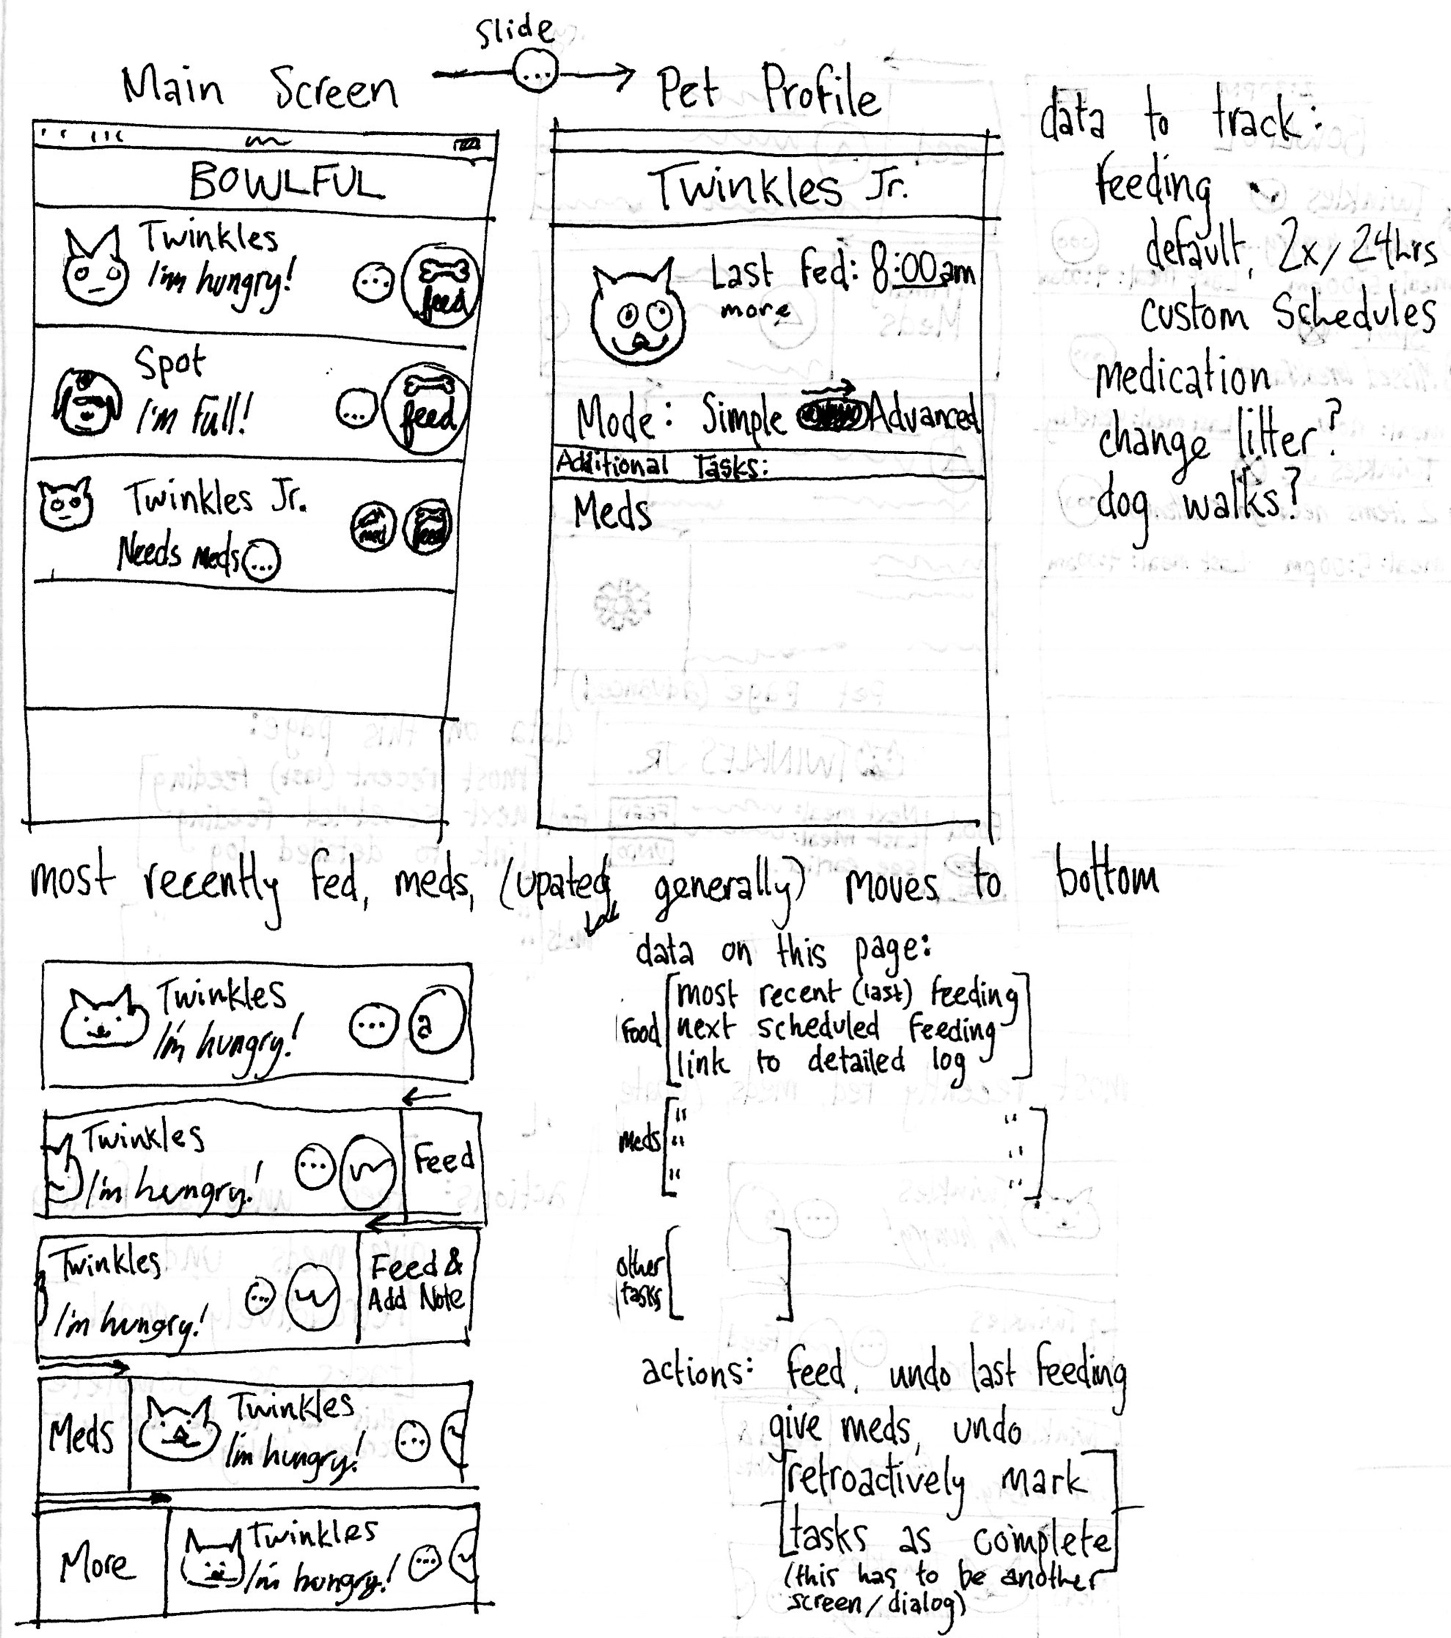 slide
Main Screen
...
Pet Profile
BOWLFUL
Twinkles
I'm hungry!
...
feed
Spot
I'm Full!
...
feed
Twinkles Jr.
Needs Meds
...
med
feed
Twinkles Jr.
Last Fed: 8:00am
more
Mode: Simple Advanced
Additional Tasks:
Meds
data to track:
feeding
default, 2x/24hrs
custom Schedules
medication
change litter?
dog walks?
most recently fed, meds, (upated generally) moves to bottom
Twinkles
I'm hungry!
...
a
Twinkles
I'm hungry!
...
Feed
Twinkles
I'm hungry!
...
Feed &
Add Note
Meds
Twinkles
I'm hungry!
...
More
Twinkles
I'm hungry!
...
data on this page:
Food
most recent (last) feeding
next scheduled feeding
link to detailed log
Meds
" "
" "
" "
other
tasks
actions: feed, undo last feeding
give meds, undo
retroactively mark
tasks as complete
(this has to be another
screen/dialog)